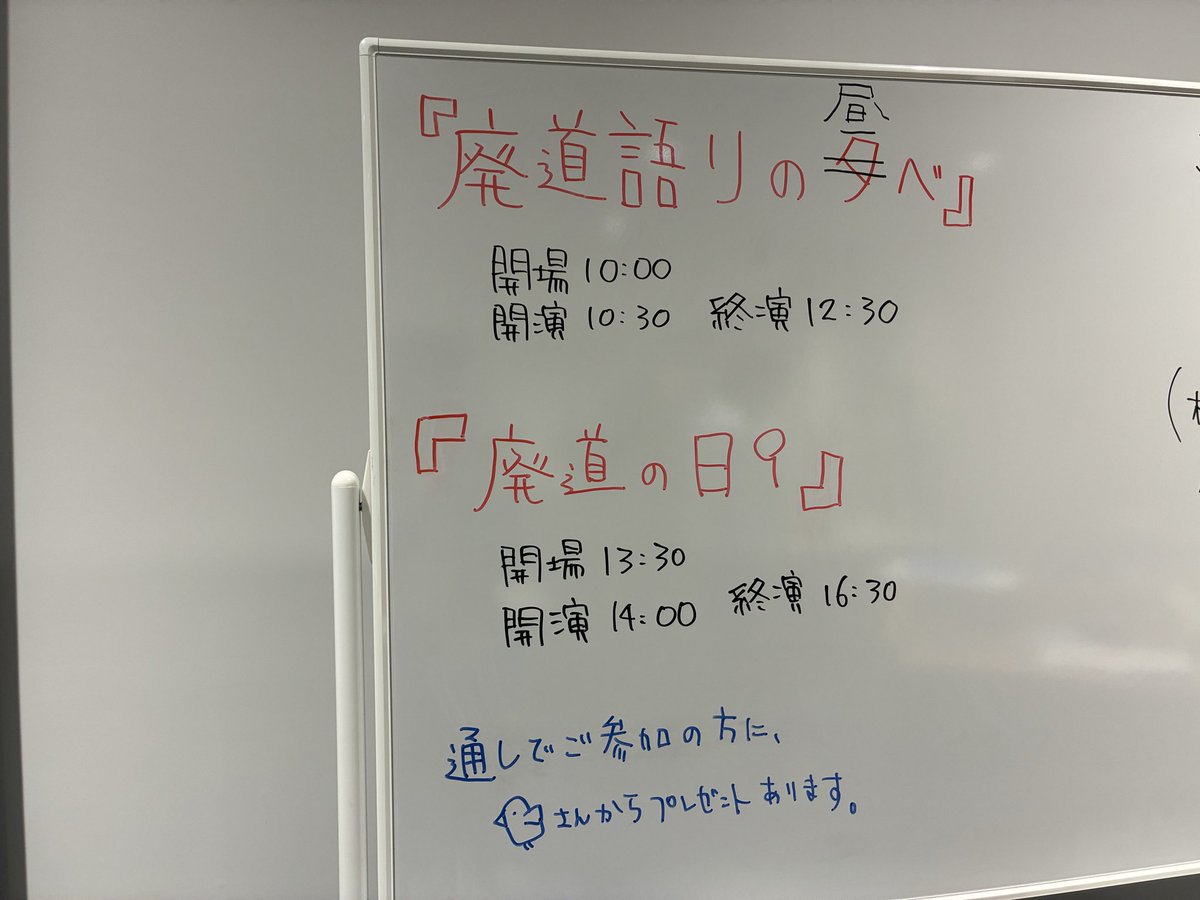 昼
『廃道語りの夕べ』
開場 10:00
開演 10:30 終演 12:30
『廃道の日9』
開場 13:30
開演 14:00 終演 16:30
通しでご参加の方に、
さんからプレゼントあります。